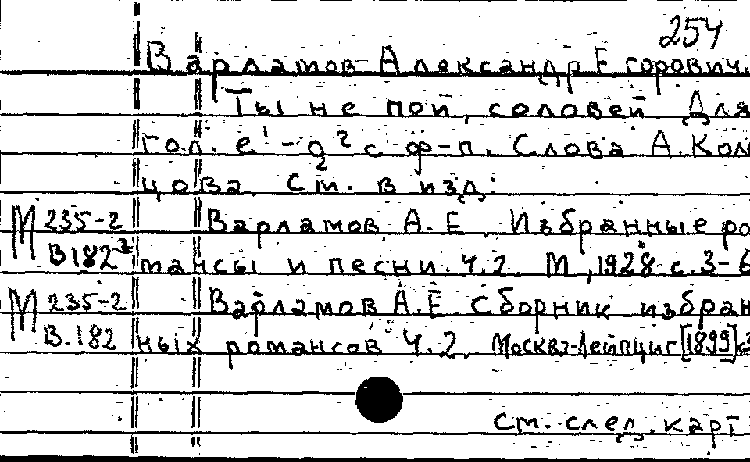 254
Варламов Александр Егорович.
Ты не пой, соловей. Для
гол. e¹ - g² с ф-п. Слова А. Коль
цова. См. в изд:
М 235-2 Варламов, А. Е. Избранные ро
В182 мансы и песни. Ч.2. М., 1928 с. 3-6
М 235-2 Варламов А. Е. Сборник избран
В.182 ных романсов Ч.2. Москва-Лейпциг [1899] с3
См. след. карт